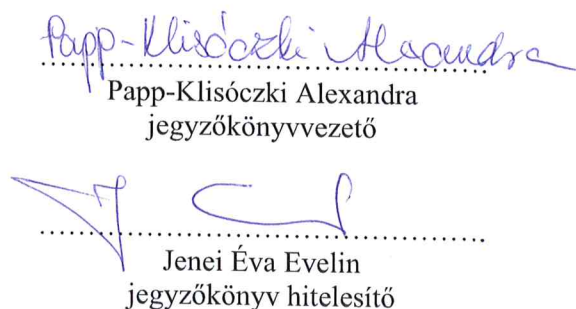 Papp-Klisóczki Alexandra
................................................................
Papp-Klisóczki Alexandra
jegyzőkönyvvezető
................................................................
Jenei Éva Evelin
jegyzőkönyv hitelesítő